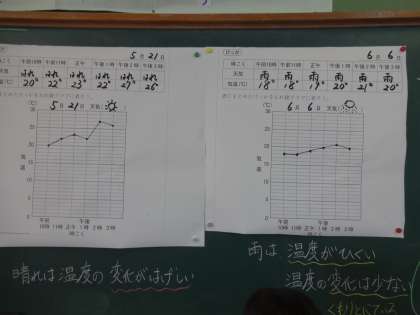 5月21日
時こく 午前10時 午前11時 正午 午後1時 午後2時 午後3時
天気 はれ はれ はれ はれ はれ はれ
気温(℃) 20° 22° 23° 22° 27° 26°
5月21日 天気
(℃)
30
25
20
15
10
5
0
気温
午前 午後
10時 11時 正午 1時 2時 3時
時こく
6月6日
時こく 午前10時 午前11時 正午 午後1時 午後2時 午後3時
天気 雨 雨 雨 雨 雨 雨
気温(℃) 18° 18° 19° 20° 21° 20°
6月6日 天気
(℃)
30
25
20
15
10
5
0
気温
午前 午後
10時 11時 正午 1時 2時 3時
時こく
晴れは温度の変化がはげしい
雨は温度がひくい
温度の変化は少ない